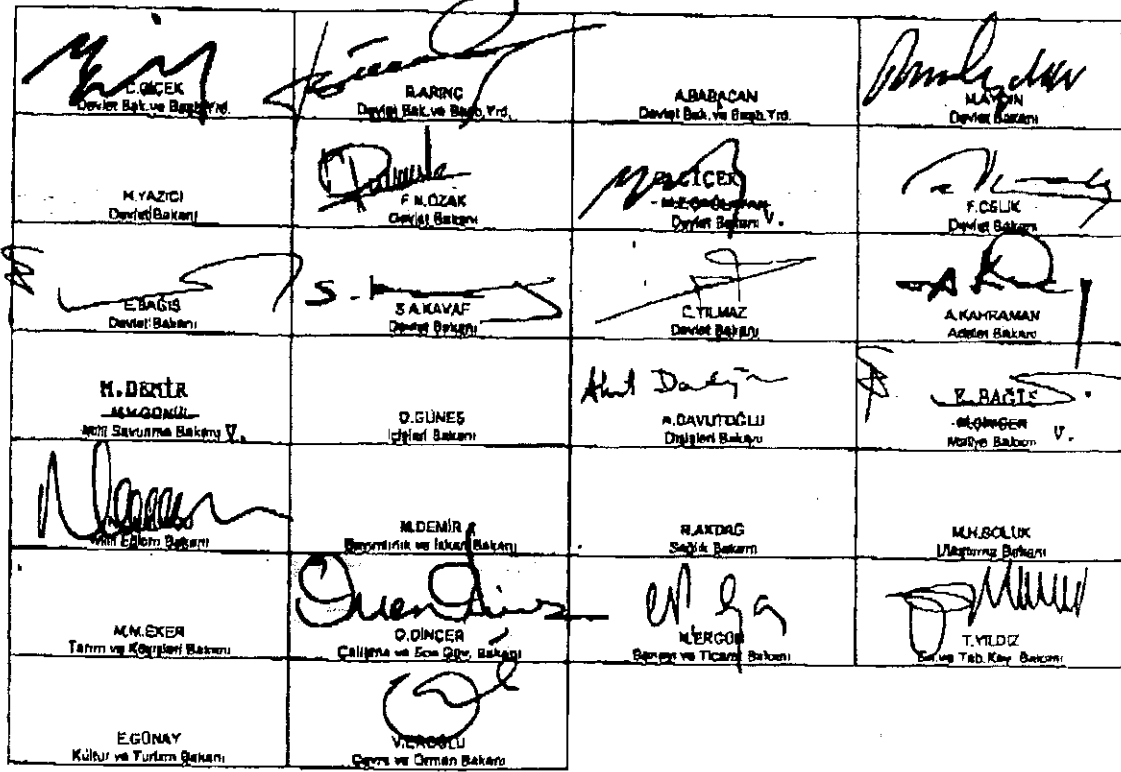 C.ÇİÇEK
Devlet Bak.ve Başb.Yrd.
B.ARINÇ
Devlet Bak.ve Başb.Yrd.
A.BABACAN
Devlet Bak. ve Başb.Yrd.
M.AYDIN
Devlet Bakanı
H.YAZICI
Devlet Bakanı
F.N.ÖZAK
Devlet Bakanı
C.ÇİÇEK
Devlet Bakanı V.
F.ÇELİK
Devlet Bakanı
E.BAĞIŞ
Devlet Bakanı
S.A.KAVAF
Devlet Bakanı
C.YILMAZ
Devlet Bakanı
A.KAHRAMAN
Adalet Bakanı
M.DEMİR
M.V.GÖNÜL
Milli Savunma Bakanı V.
O.GÜNEŞ
İçişleri Bakanı
A.DAVUTOĞLU
Dışişleri Bakanı
E.BAĞIŞ
Maliye Bakanı V.
Milli Eğitim Bakanı
M.DEMİR
Bayındırlık ve İskan Bakanı
R.AKDAĞ
Sağlık Bakanı
M.H.SOLUK
Ulaştırma Bakanı
M.M.EKER
Tarım ve Köyişleri Bakanı
Ö.DİNÇER
Çalışma ve Sos.Güv. Bakanı
N.ERGÜN
Sanayi ve Ticaret Bakanı
T.YILDIZ
En.ve Tab.Kay. Bakanı
E.GÜNAY
Kültür ve Turizm Bakanı
V.EROĞLU
Çevre ve Orman Bakanı